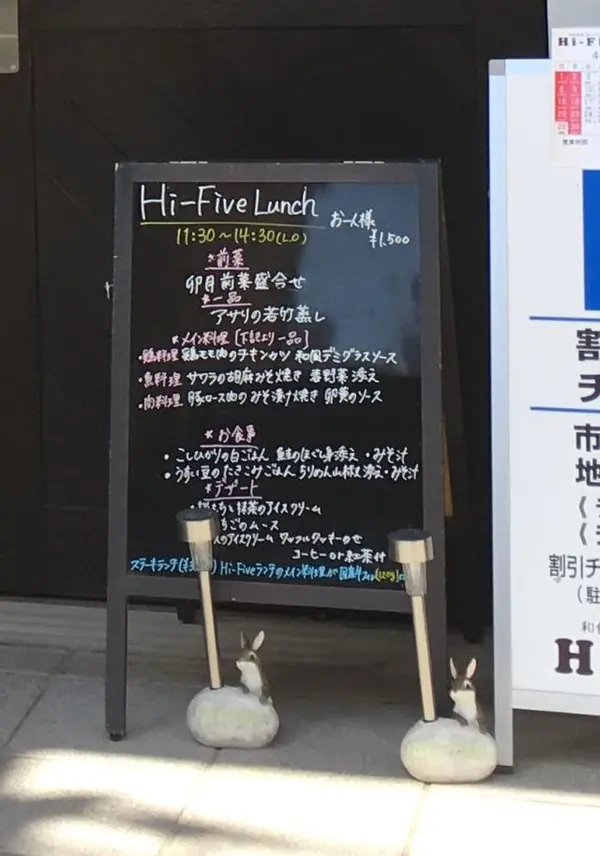 Hi-Five Lunch
お一人様
¥1,500
11:30～14:30(L.O)
*前菜
卯月前菜盛合せ
*一品
アサリの若竹蒸し
*メイン料理 [下記より一品]
・鶏料理 鶏モモ肉のチキンカツ 和風デミグラスソース
・魚料理 サワラの胡麻みそ焼き 春野菜添え
・肉料理 豚ロース肉のみそ漬け焼き 卵黄のソース
*お食事
・こしひかりの白ごはん 鮭のほぐし身添え・みそ汁
・うすい豆のたきこみごはん ちりめん山椒添え・みそ汁
*デザート
と抹茶のアイスクリーム
ちごのムース
のアイスクリーム ワッフルクッキーのせ
コーヒーor紅茶付
ステーキランチ Hi-Fiveランチのメイン料理が国産牛 (120g)
Hi-F
4
営業時間
割
チ
市
地
割引チ
(駐
和
H